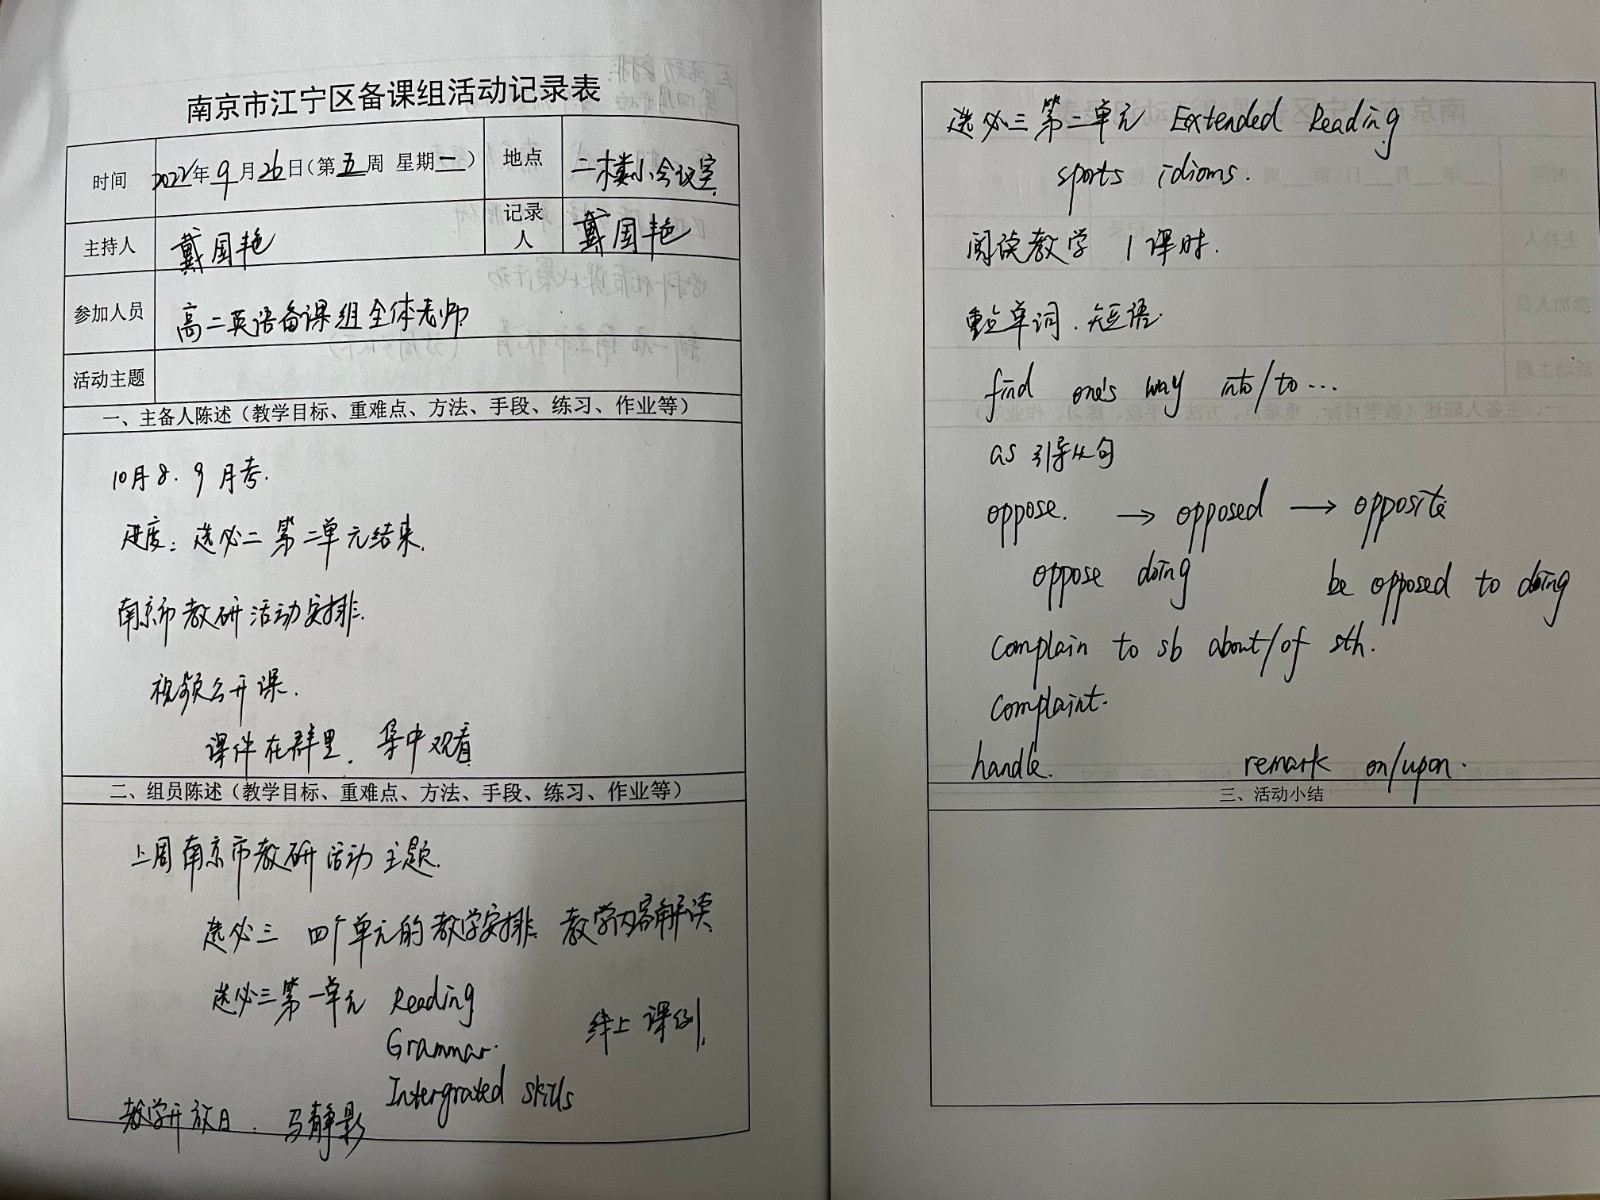 南京市江宁区备课组活动记录表
时间 2022年9月26日(第五周 星期一) 地点 二楼小会议室
主持人 戴国艳 记录人 戴国艳
参加人员 高二英语备课组全体老师
活动主题
一、主备人陈述(教学目标、重难点、方法、手段、练习、作业等)
10月8.9月考.
进度: 选必二第二单元结束.
南京市教研活动安排.
视频公开课.
课件在群里. 集中观看
二、组员陈述(教学目标、重难点、方法、手段、练习、作业等)
上周南京市教研活动主题.
选必三 四个单元的教学安排 教学内容解读
选必三第一单元 Reading
Grammar. 线上课例.
Intergrated skills
教学开放日. 马静影
选必三第二单元 Extended Reading
sports idioms.
阅读教学 1课时.
重点单词.短语.
find one's way into/to...
as 引导从句
oppose. → opposed → opposite
oppose doing be opposed to doing
complain to sb about/of sth.
complaint.
handle. remark on/upon.
三、活动小结